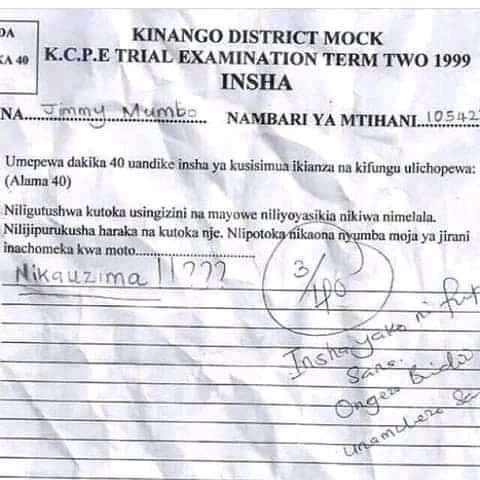 DA
KINANGO DISTRICT MOCK
KA 40
K.C.P.E TRIAL EXAMINATION TERM TWO 1999
INSHA
NA....Jimmy Mumbo.... NAMBARI YA MTIHANI..10542
Umepewa dakika 40 uandike insha ya kusisimua ikianza na kifungu ulichopewa:
(Alama 40)
Niligutushwa kutoka usingizini na mayowe niliyoyasikia nikiwa nimelala.
Nilijipurukusha haraka na kutoka nje. Nlipotoka nikaona nyumba moja ya jirani
inachomeka kwa moto..............................
Nikauzima !!???
3/40
Insha yako ni
Sana.
Ongeza